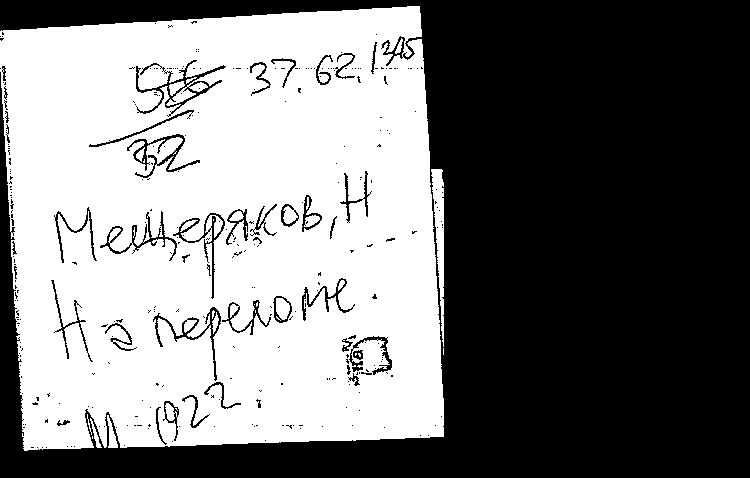 37.62.1345
32
Мещеряков, Н
На переломе.
М 1922.